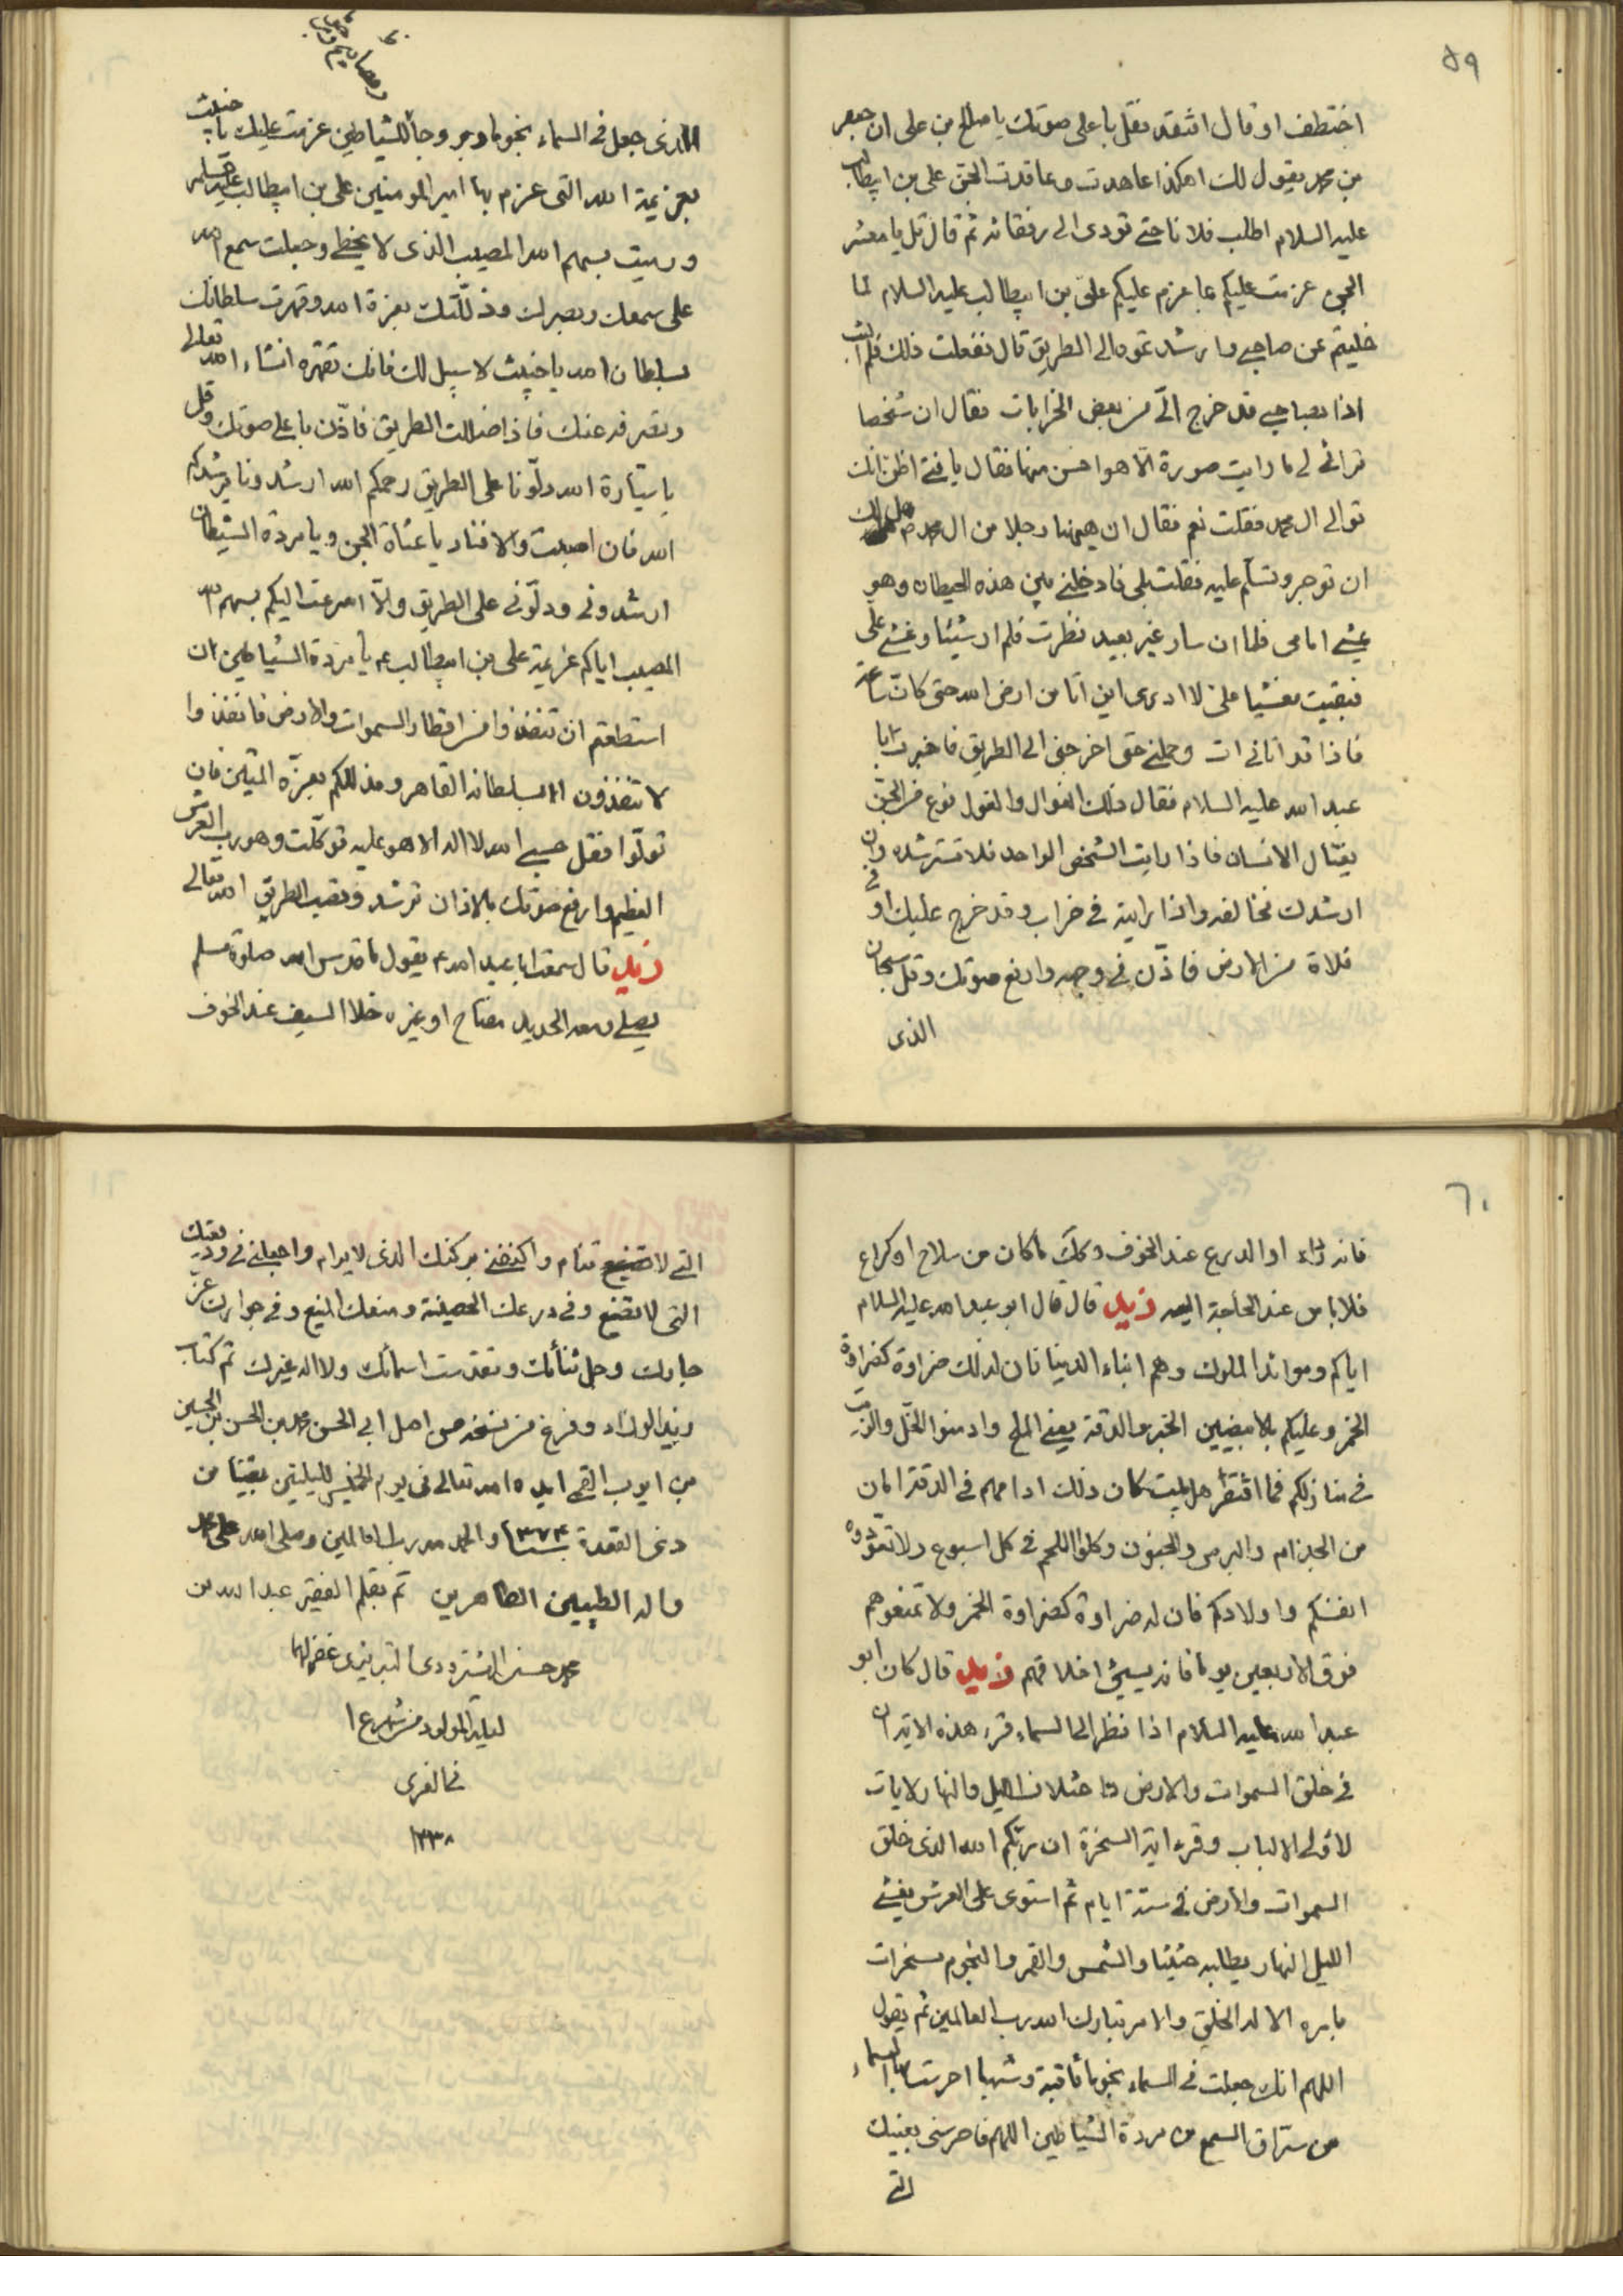 ٥٩
اختطف او قال افتقد فقل باعلى صوتك يا صالح بن على ان جعفر
بن محمد يقول لك اهكذا عاهدت وعاقدت الجن على بن ابيطالب
عليه السلام اطلب فلانا حتى تودى الى رفقائه ثم قال قل يا معشر
الجن عزمت عليكم بما عزم عليكم علىّ بن ابيطالب عليه السلام لما
خليتم عن صاحبى وارشدتموه الى الطريق قال ففعلت ذلك فلم البث
اذا بصاحبى قد خرج الىّ من بعض الخرابات فقال ان شخصا
ترائى لى ما رايت صورة الّا هو احسن منها فقال يا فتى اظن انك
توالى ال محمد فقلت نعم فقال ان هيهنا رجلا من ال محمد هل لك
ان توجر وتسلّم عليه فقلت بلى فادخلنى بين هذه الحيطان وهو
يمشى امامى فلما ان سار غير بعيد نظرت فلم ار شيئا وغشى علىّ
فبقيت مغشيا علىّ لا ادرى اين انا من ارض الله حتى كان ساعة
فاذا قد اتانى ات وحملنى حتى اخرجنى الى الطريق فاخبرت ابا
عبد الله عليه السلام فقال ذلك الغوال والغول نوع من الجنّ
يغتال الانسان فاذا رايت الشخص الواحد فلا تسترشده وان
ارشدك فخالفه واذا رايته فى خراب وقد خرج عليك او فى
فلاة من الارض فاذّن فى وجهه وارفع صوتك وقل سبحان
الذى
الذى جعل فى السماء نجوما وبروجا للشياطين عزمت عليك يا خبيث
بعزيمة الله التى عزم بها امير المومنين على بن ابيطالب
ورميت بسهم الله المصيب الذى لا يخطى وجعلت سمع الله
على سمعك وبصرك وذللّتك بعزة الله وقهرت سلطانك
بسلطان الله يا خبيث لا سبيل لك فانك تقهره انشاء الله تعالى
وتصرفه عنك فاذا ضللت الطريق فاذّن باعلى صوتك وقل
يا سيّارة الله دلّونا على الطريق رحمكم الله ارشدونا يرشدكم
الله فان اصبت والا فناد يا عتاة الجن ويا مردة الشيطان
ارشدونى ودلّونى على الطريق والّا اسرعت اليكم بسهم الله
المصيب اياكم عزيمة على بن ابيطالب ع يا مردة الشياطين ان
استطعتم ان تنفذوا من اقطار السموات والارض فانفذوا
لا تنفذون الا بسلطانه القاهر ومذللكم بعزّه المتين فان
تولّوا فقل حسبى الله لا اله الا هو عليه توكّلت وهو رب العرش
العظيم وارفع صوتك بالاذان ترشد وتصيب الطريق الله تعالى
زيد قال سمعت ابا عبد الله ع يقول ما قدس الله صلوة مسلم
يصلى ومعه الحديد مفتاح او غيره خلا السيف عند الخوف
٦٠
فانه رداء او الدرع عند الخوف وكلّ ما كان من سلاح او كراع
فلا باس عند الحاجة اليه زيد قال قال ابو عبد الله عليه السلام
اياكم وموائد الملوك وهم ابناء الدنيا فان لذلك ضراوة كضراوة
الخمر وعليكم بالابيضين الخبز والدقة يعنى الملح وادمنوا الخلّ والزيت
فى منازلكم فما افتقر اهل بيت كان ذلك ادامهم فى الدقة امان
من الجذام والبرص والجنون وكلوا اللحم فى كل اسبوع ولا تعوّدوه
انفسكم واولادكم فان له ضراوة كضراوة الخمر ولا تمنعوهم
فوق الاربعين يوما فانه يسيئ اخلاقهم زيد قال كان ابو
عبد الله عليه السلام اذا نظر الى السماء قرء هذه الاية ان
فى خلق السموات والارض واختلاف الليل والنهار لايات
لاولى الالباب وقرء اية السخرة ان ربّكم الله الذى خلق
السموات والارض فى ستة ايام ثم استوى على العرش يغشى
الليل النهار يطلبه حثيثا والشمس والقمر والنجوم مسخرات
بامره الا له الخلق والامر تبارك الله رب العالمين ثم يقول
اللهم انك جعلت فى السماء نجوما ثاقبة وشهبا احرست بها السماء
من سرّاق السمع من مردة الشياطين اللهم فاحرسنى بعينك
التى
التى لا تنام واكنفنى بركنك الذى لا يرام واجعلنى فى وديعتك
التى لا تضيع وفى درعك الحصينة ومنعك المنيع وفى جوارك عزّ
جارك وجل ثناؤك وتقدست اسماؤك ولا اله غيرك تم كتاب
زيد الزراد وفرغ من نسخه من اصل ابى الحسن محمد بن الحسن بن الحسين
بن ايوب القمى ايده الله تعالى فى يوم الخميس لليلتين بقيتا من
ذى القعدة سنة ٣٧٤ والحمد لله رب العالمين وصلى الله على محمد
واله الطيبين الطاهرين تم بقلم الفقير عبد الله بن
محمد حسن التبريزى غفر لهما
ليلة المولود من شهر ع ١
فى الغرى
١٣٣٨